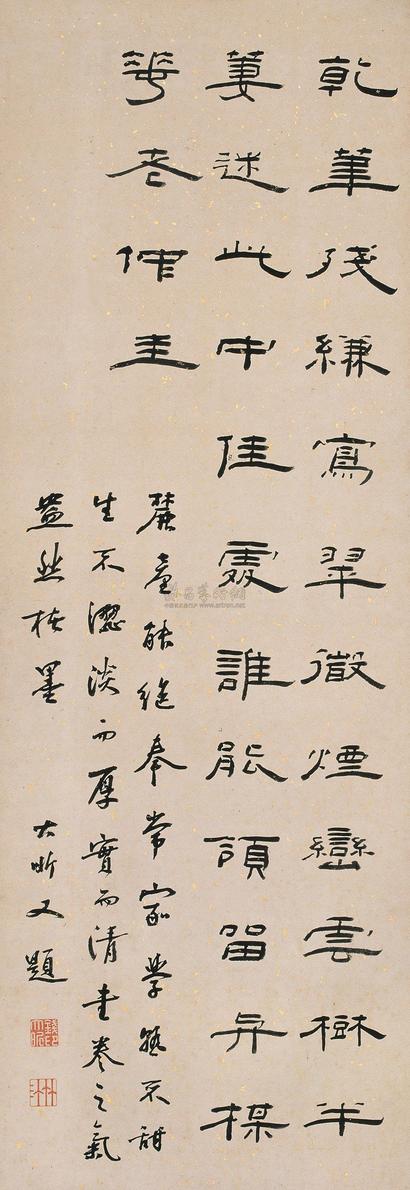 乾筆殘縑寫翠微煙巒雲樹半
萋迷此中佳處誰能領留與楳
華老作圭
麓臺能繼奉常家學熟不甜
生不澀淡而厚實而清書卷之氣
盎然楮墨
大昕又題
www.artron.net